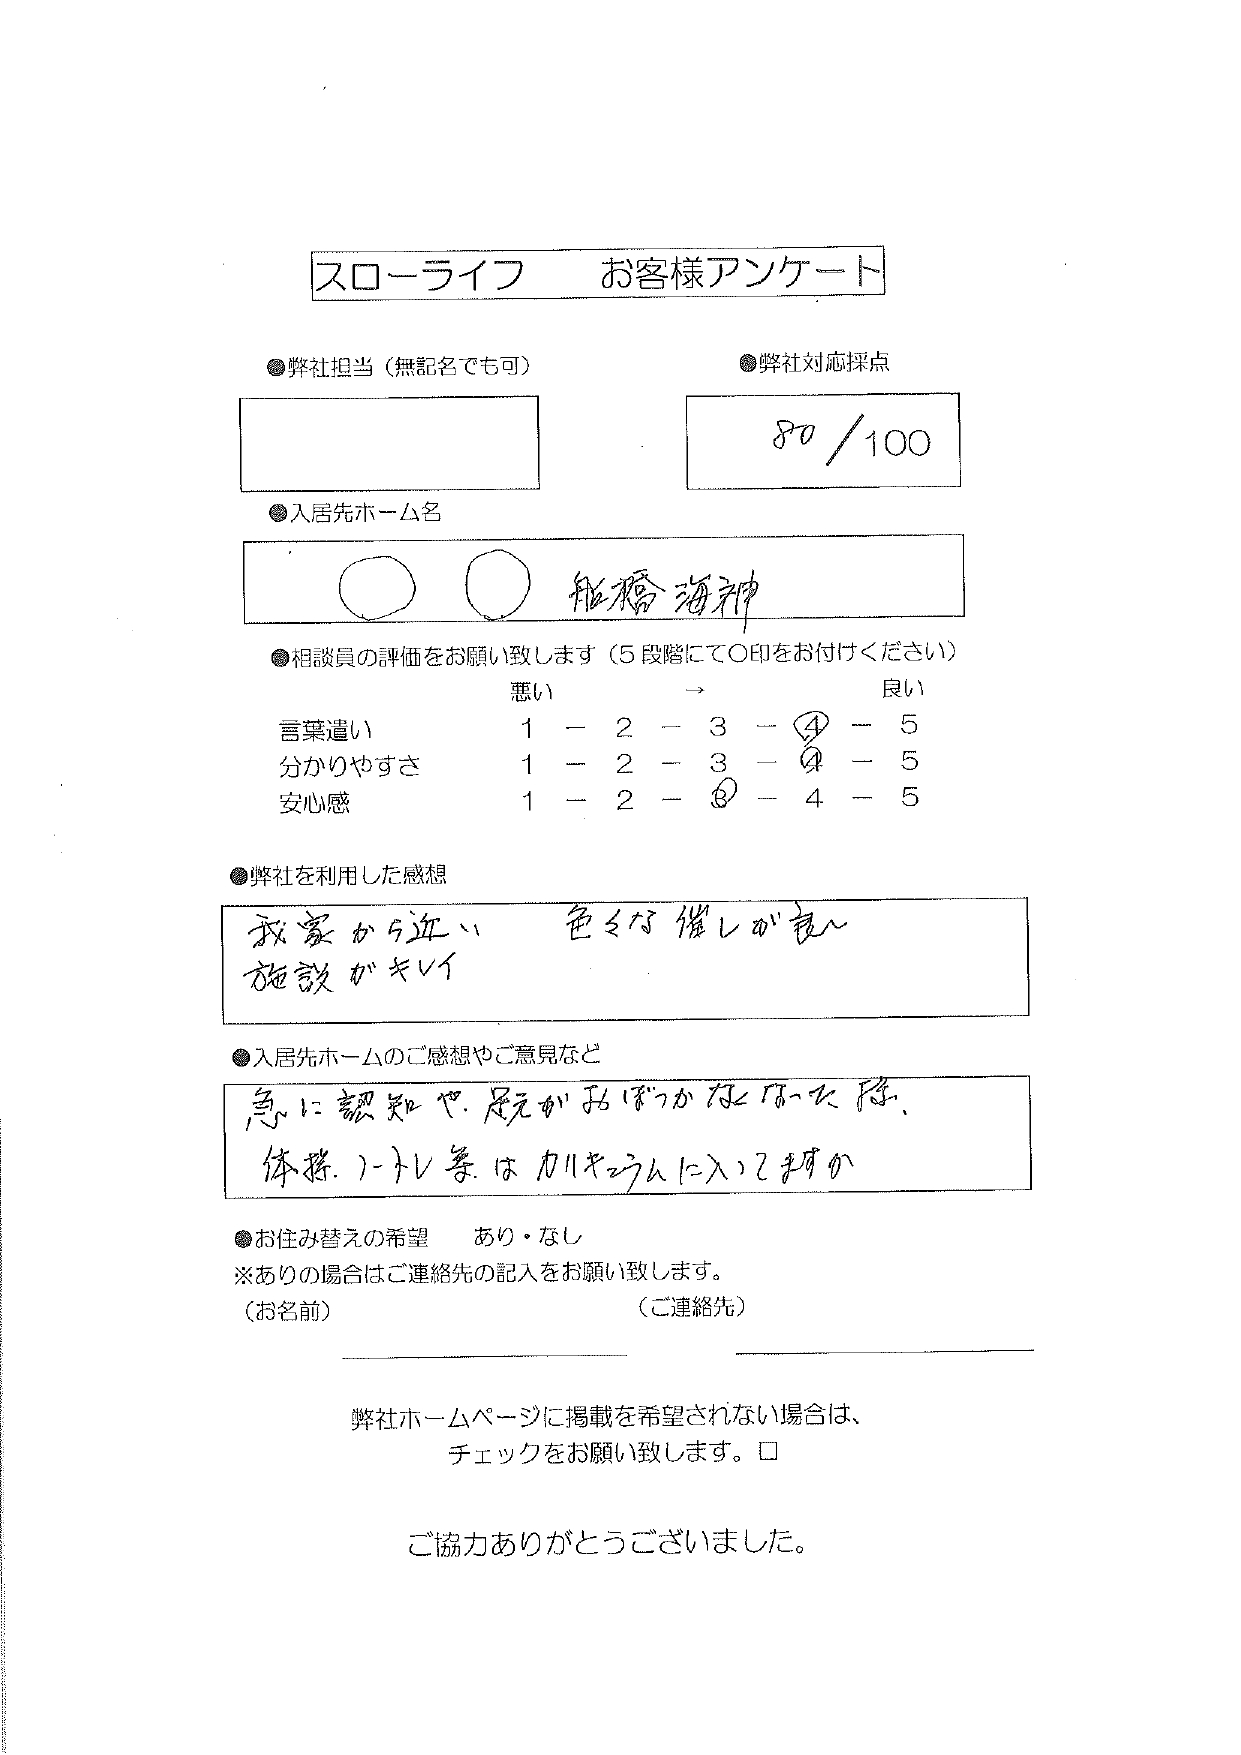 スローライフ　　お客様アンケート
●弊社担当（無記名でも可）　　●弊社対応採点
80／100
●入居先ホーム名
○ ○ 船橋海神
●相談員の評価をお願い致します（5段階にて〇印をお付けください）
悪い　　→　　良い
言葉遣い　1 － 2 － 3 － 4 － 5
分かりやすさ　1 － 2 － 3 － 4 － 5
安心感　1 － 2 － 3 － 4 － 5
●弊社を利用した感想
我家から近い　　色々な催しが良い
施設がキレイ
●入居先ホームのご感想やご意見など
急に認知や、足元がおぼつかなくなった際、
体操、ノートレ等はカリキュラムに入ってますか
●お住み替えの希望　　あり・なし
※ありの場合はご連絡先の記入をお願い致します。
（お名前）　　（ご連絡先）
弊社ホームページに掲載を希望されない場合は、
チェックをお願い致します。□
ご協力ありがとうございました。